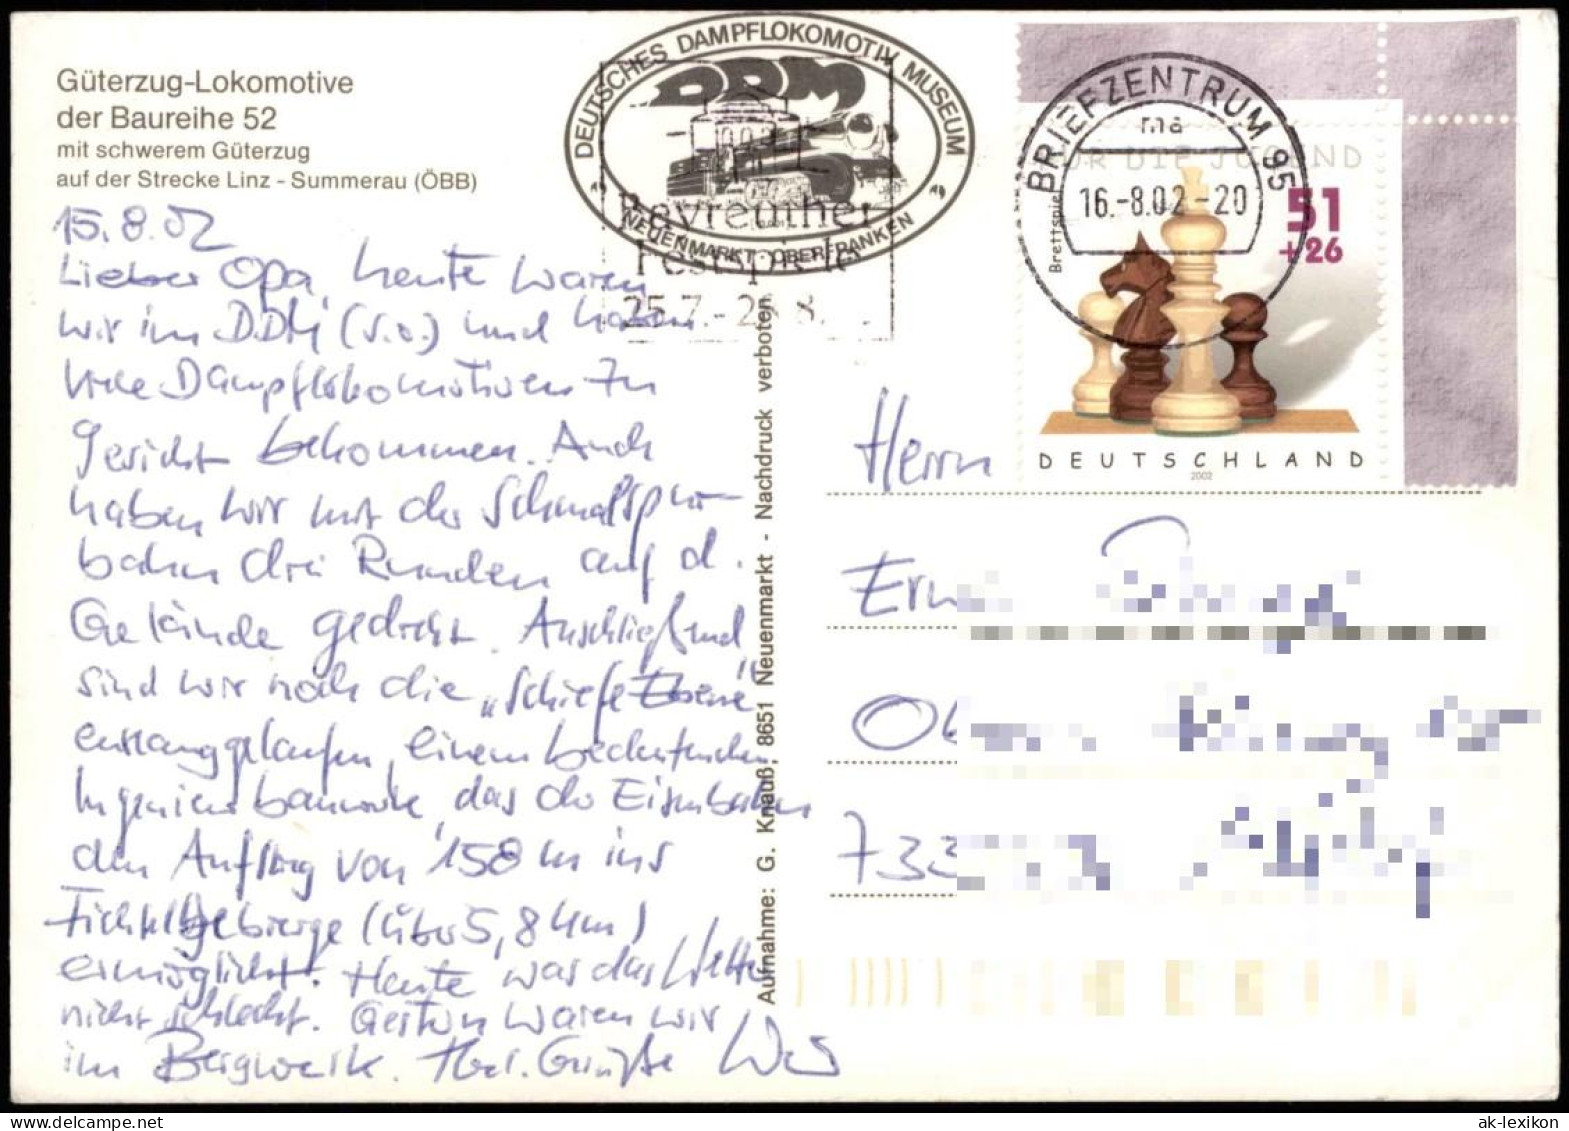 Güterzug-Lokomotive
der Baureihe 52
mit schwerem Güterzug
auf der Strecke Linz - Summerau (ÖBB)
15.8.02
Lieber Opa, heute waren
wir im DDM (s.o.) und haben
viele Dampflokomotiven zu
Gesicht bekommen. Auch
haben wir mit der Schmalspur-
bahn drei Runden auf d.
Gelände gedreht. Anschließend
sind wir noch die „Schiefe Ebene"
entlanggelaufen, einem bedeutenden
Ingenieurbauwerk, das der Eisenbahn
den Aufstieg von 158 m ins
Fichtelgebierge (über 5,8 km)
ermöglicht. Heute war das Wetter
nicht schlecht. Gestern waren wir
im Bergwerk. Herzl. Grüße
DEUTSCHES DAMPFLOKOMOTIV MUSEUM
DDM
NEUENMARKT · OBERFRANKEN
Bayreuther
Festspiele
25.7.-28.8.
BRIEFZENTRUM 95
ma
16.-8.02-20
FÜR DIE JUGEND
Brettspiele
51
+26
DEUTSCHLAND
2002
Aufnahme: G. Knauß, 8651 Neuenmarkt - Nachdruck verboten
Herrn
733
ak-lexikon